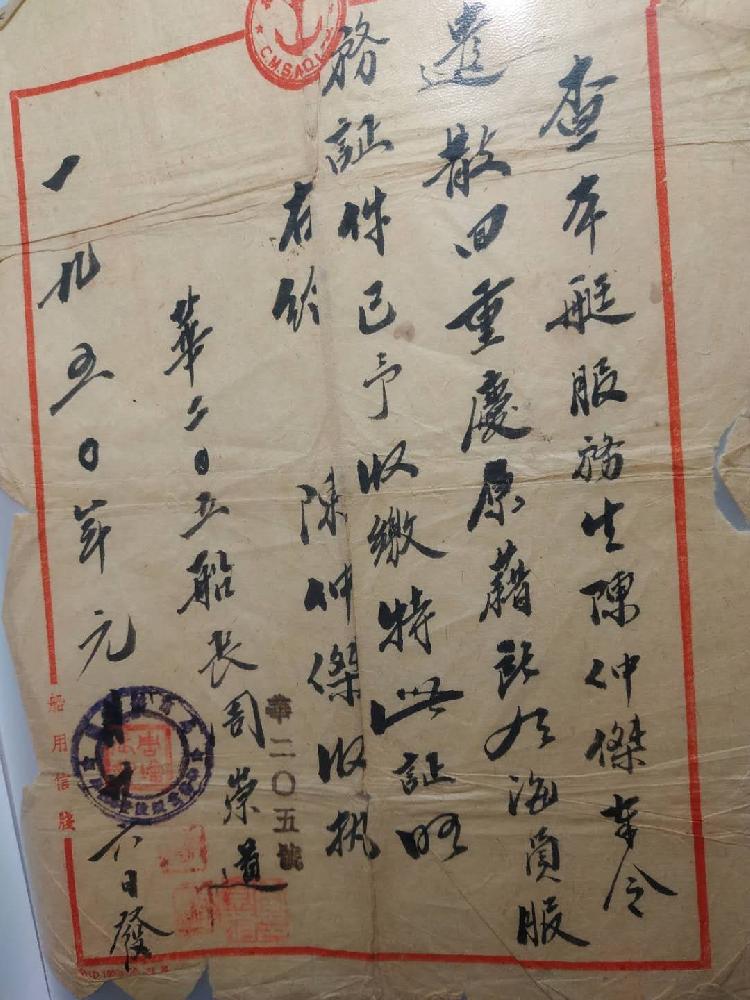 查本艇服務生陳仲傑奉令
遣散回重慶原藉 海員服
務証件已予收繳特此証明
右給
陳仲傑收執
華二〇五船長周崇道
華二〇五號
一九五〇年元月廿六日發
船用信牋
C.M.S.A.Q.I.